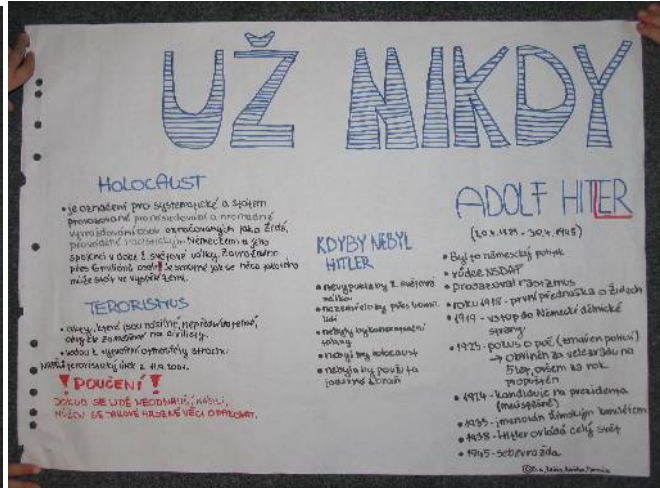 UŽ NIKDY
HOLOCAUST
• je označení pro systematické a státem
provozované pronásledování a hromadné
vyvražďování osob označovaných jako Židé,
prováděné nacistickým Německem a jeho
spojenci v době 2. světové války. Zavražděno
přes 6 milionů osob! Je smutné jak se něco takového
může stát ve vyspělé zemi.
TERORISMUS
• útoky, které jsou násilné, nepředvídatelné,
obvykle zaměřené na civilisty.
• vedou k vytvoření atmosféry strachu.
NAPŘ: teroristický útok z 11.9.2001.
! POUČENÍ !
DOKUD SE LIDÉ NEODNAUČÍ NÁSILÍ,
MŮŽOU SE TAKOVÉ HROZNÉ VĚCI OPAKOVAT.
KDYBY NEBYL
HITLER
• nevypukla by 2. světová
válka
• nezemřelo by přes
lidí
• nebyly by koncentrační
tábory
• nebyl by holocaust
• nebyla by použita
jaderná zbraň
ADOLF HITLER
(20.4.1889 - 30.4.1945)
• Byl to německý politik
• vůdce NSDAP
• prosazoval rasizmus
• roku 1918 - první přednáška o židech
• 1919 - vstup do Německé dělnické
strany
• 1923 - pokus o puč
→ obviněn za velezradu na
5 let, ovšem za rok
propuštěn
• kandiduje na prezidenta
(neúspěšně)
• 1933 - jmenován říšským kancléřem
• 1938 - Hitler ovládá celý svět
• 1945 - sebevražda